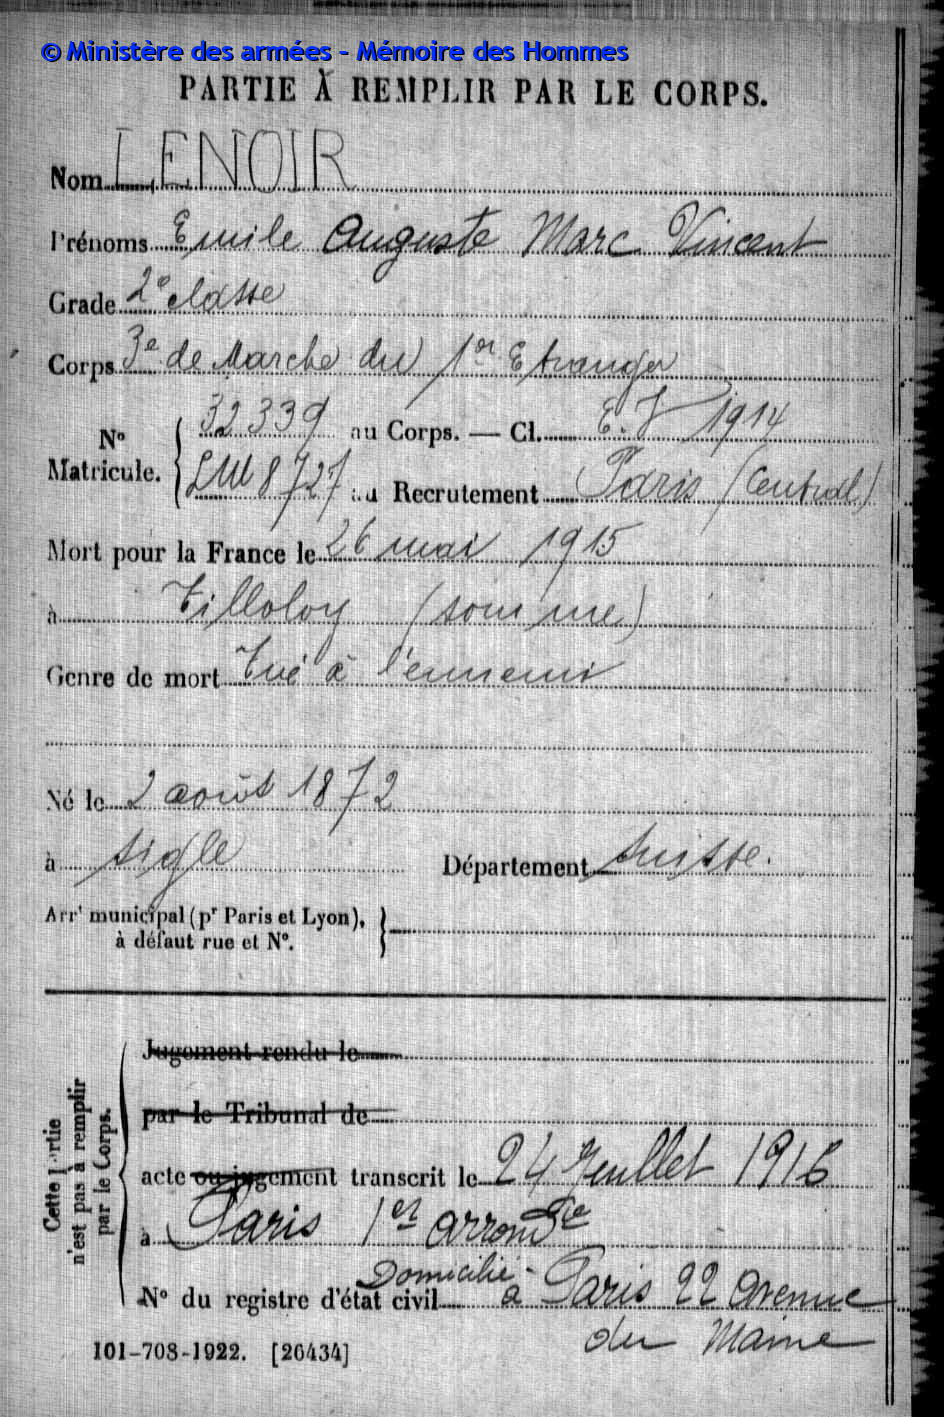 © Ministère des armées - Mémoire des Hommes
PARTIE À REMPLIR PAR LE CORPS.
Nom LENOIR
Prénoms Emile Auguste Marc Vincent
Grade 2e classe
Corps 3e de Marche du 1er Etranger
N° Matricule. { 32339 au Corps. — Cl. E. V 1914
LM 8727 au Recrutement Paris (Central)
Mort pour la France le 26 mai 1915
à Tilloloy (somme)
Genre de mort Tué à l'ennemi
Né le 2 août 1872
à Aigle Département Suisse.
Arrt municipal (pr Paris et Lyon),
à défaut rue et N°. }
Cette partie n'est pas à remplir par le Corps.
Jugement rendu le
par le Tribunal de
acte ou jugement transcrit le 24 Juillet 1916
à Paris 1er arrondie
Domicilié
N° du registre d'état civil à Paris 22 Avenue
du Maine
101-708-1922. [26434]